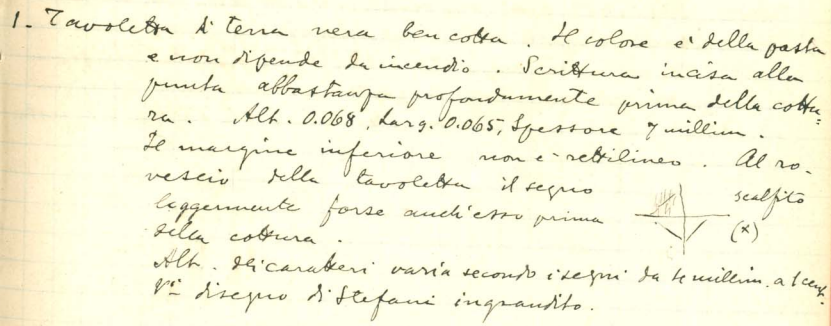 1. Tavoletta di terra nera ben cotta. Il colore è della pasta
e non dipende da incendio. Scrittura incisa alla
punta abbastanza profondamente prima della cottu=
ra. Alt. 0.068, Larg. 0.065, Spessore 7 millim.
Il margine inferiore non è rettilineo. Al ro-
vescio della tavoletta il segno scalfito
leggermente forse anch'esso prima (x)
della cottura.
Alt. dei caratteri varia secondo i segni da 4 millim. a 1 cent.
Vi disegno di Stefani ingrandito.